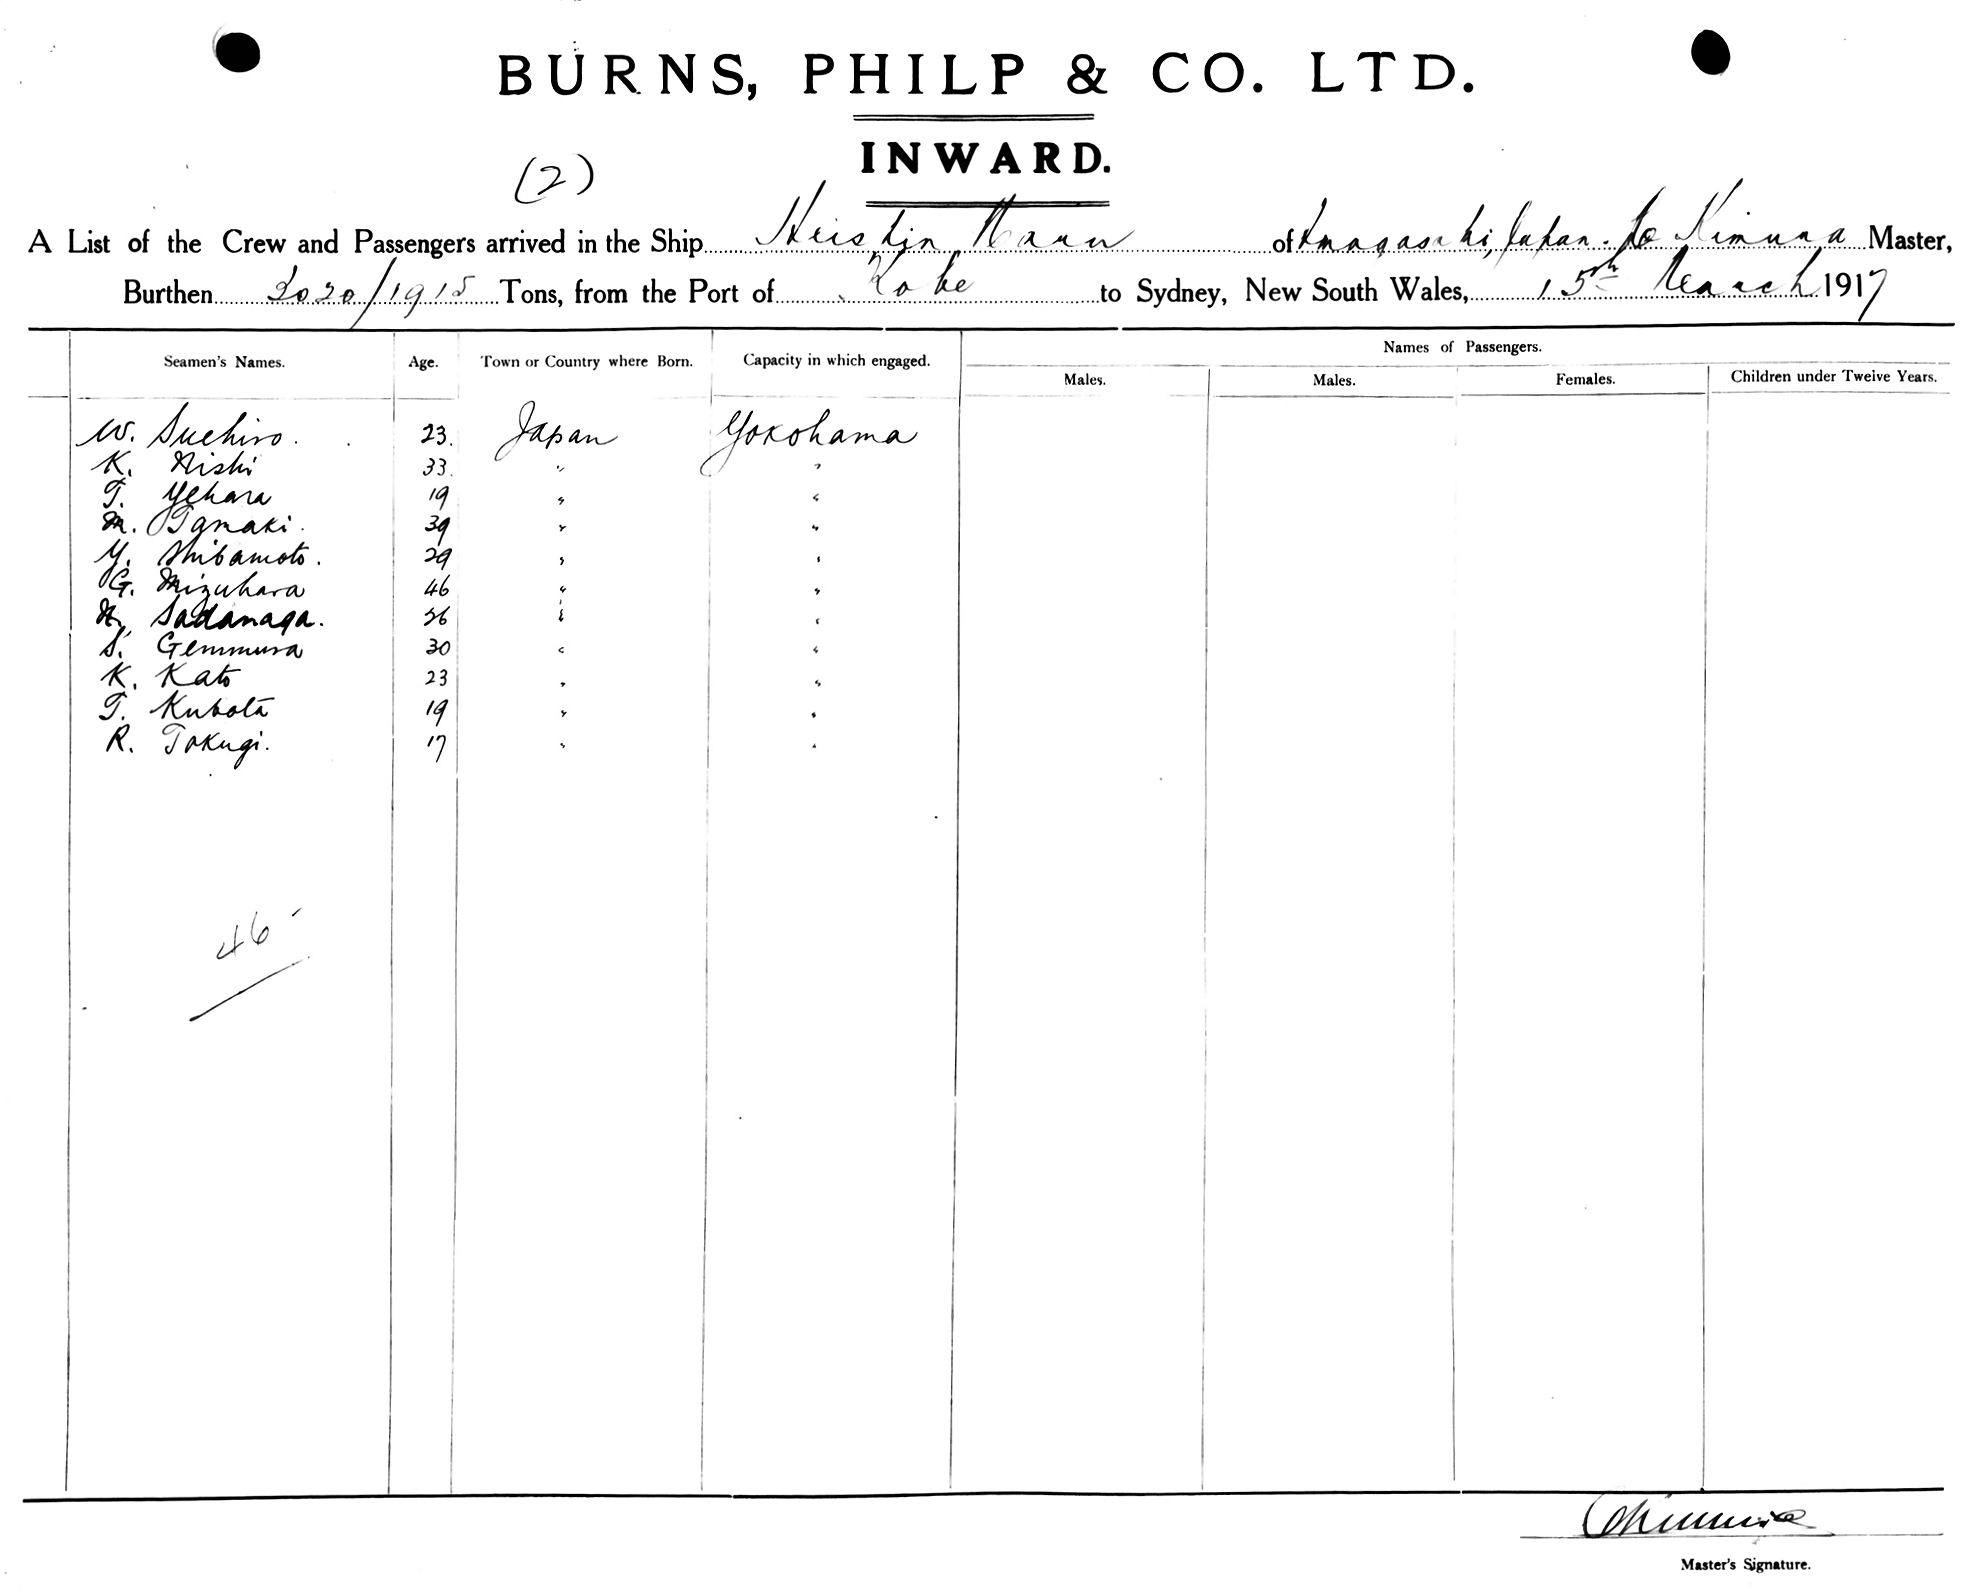 BURNS, PHILP & CO. LTD.
INWARD.
(2)
A List of the Crew and Passengers arrived in the Ship Maru of Amagasaki, Japan. Kimura Master,
Burthen 3020/1915 Tons, from the Port of Kobe to Sydney, New South Wales, 15th March 1917
Names of Passengers.
Seamen's Names. Age. Town or Country where Born. Capacity in which engaged. Males. Males. Females. Children under Twelve Years.
W. Suehiro. 23. Japan Yokohama
K. Nishi 33. " "
T. Yehara 19 " "
M. Tamaki. 39 " "
Y. Shibamoto. 29 " "
G. Mizuhara 46 " "
Sadanaga. " "
S. Gemmura 30 " "
K. Kato 23 " "
T. Kubota 19 " "
R. Tokugi. 17 " "
46
Master's Signature.